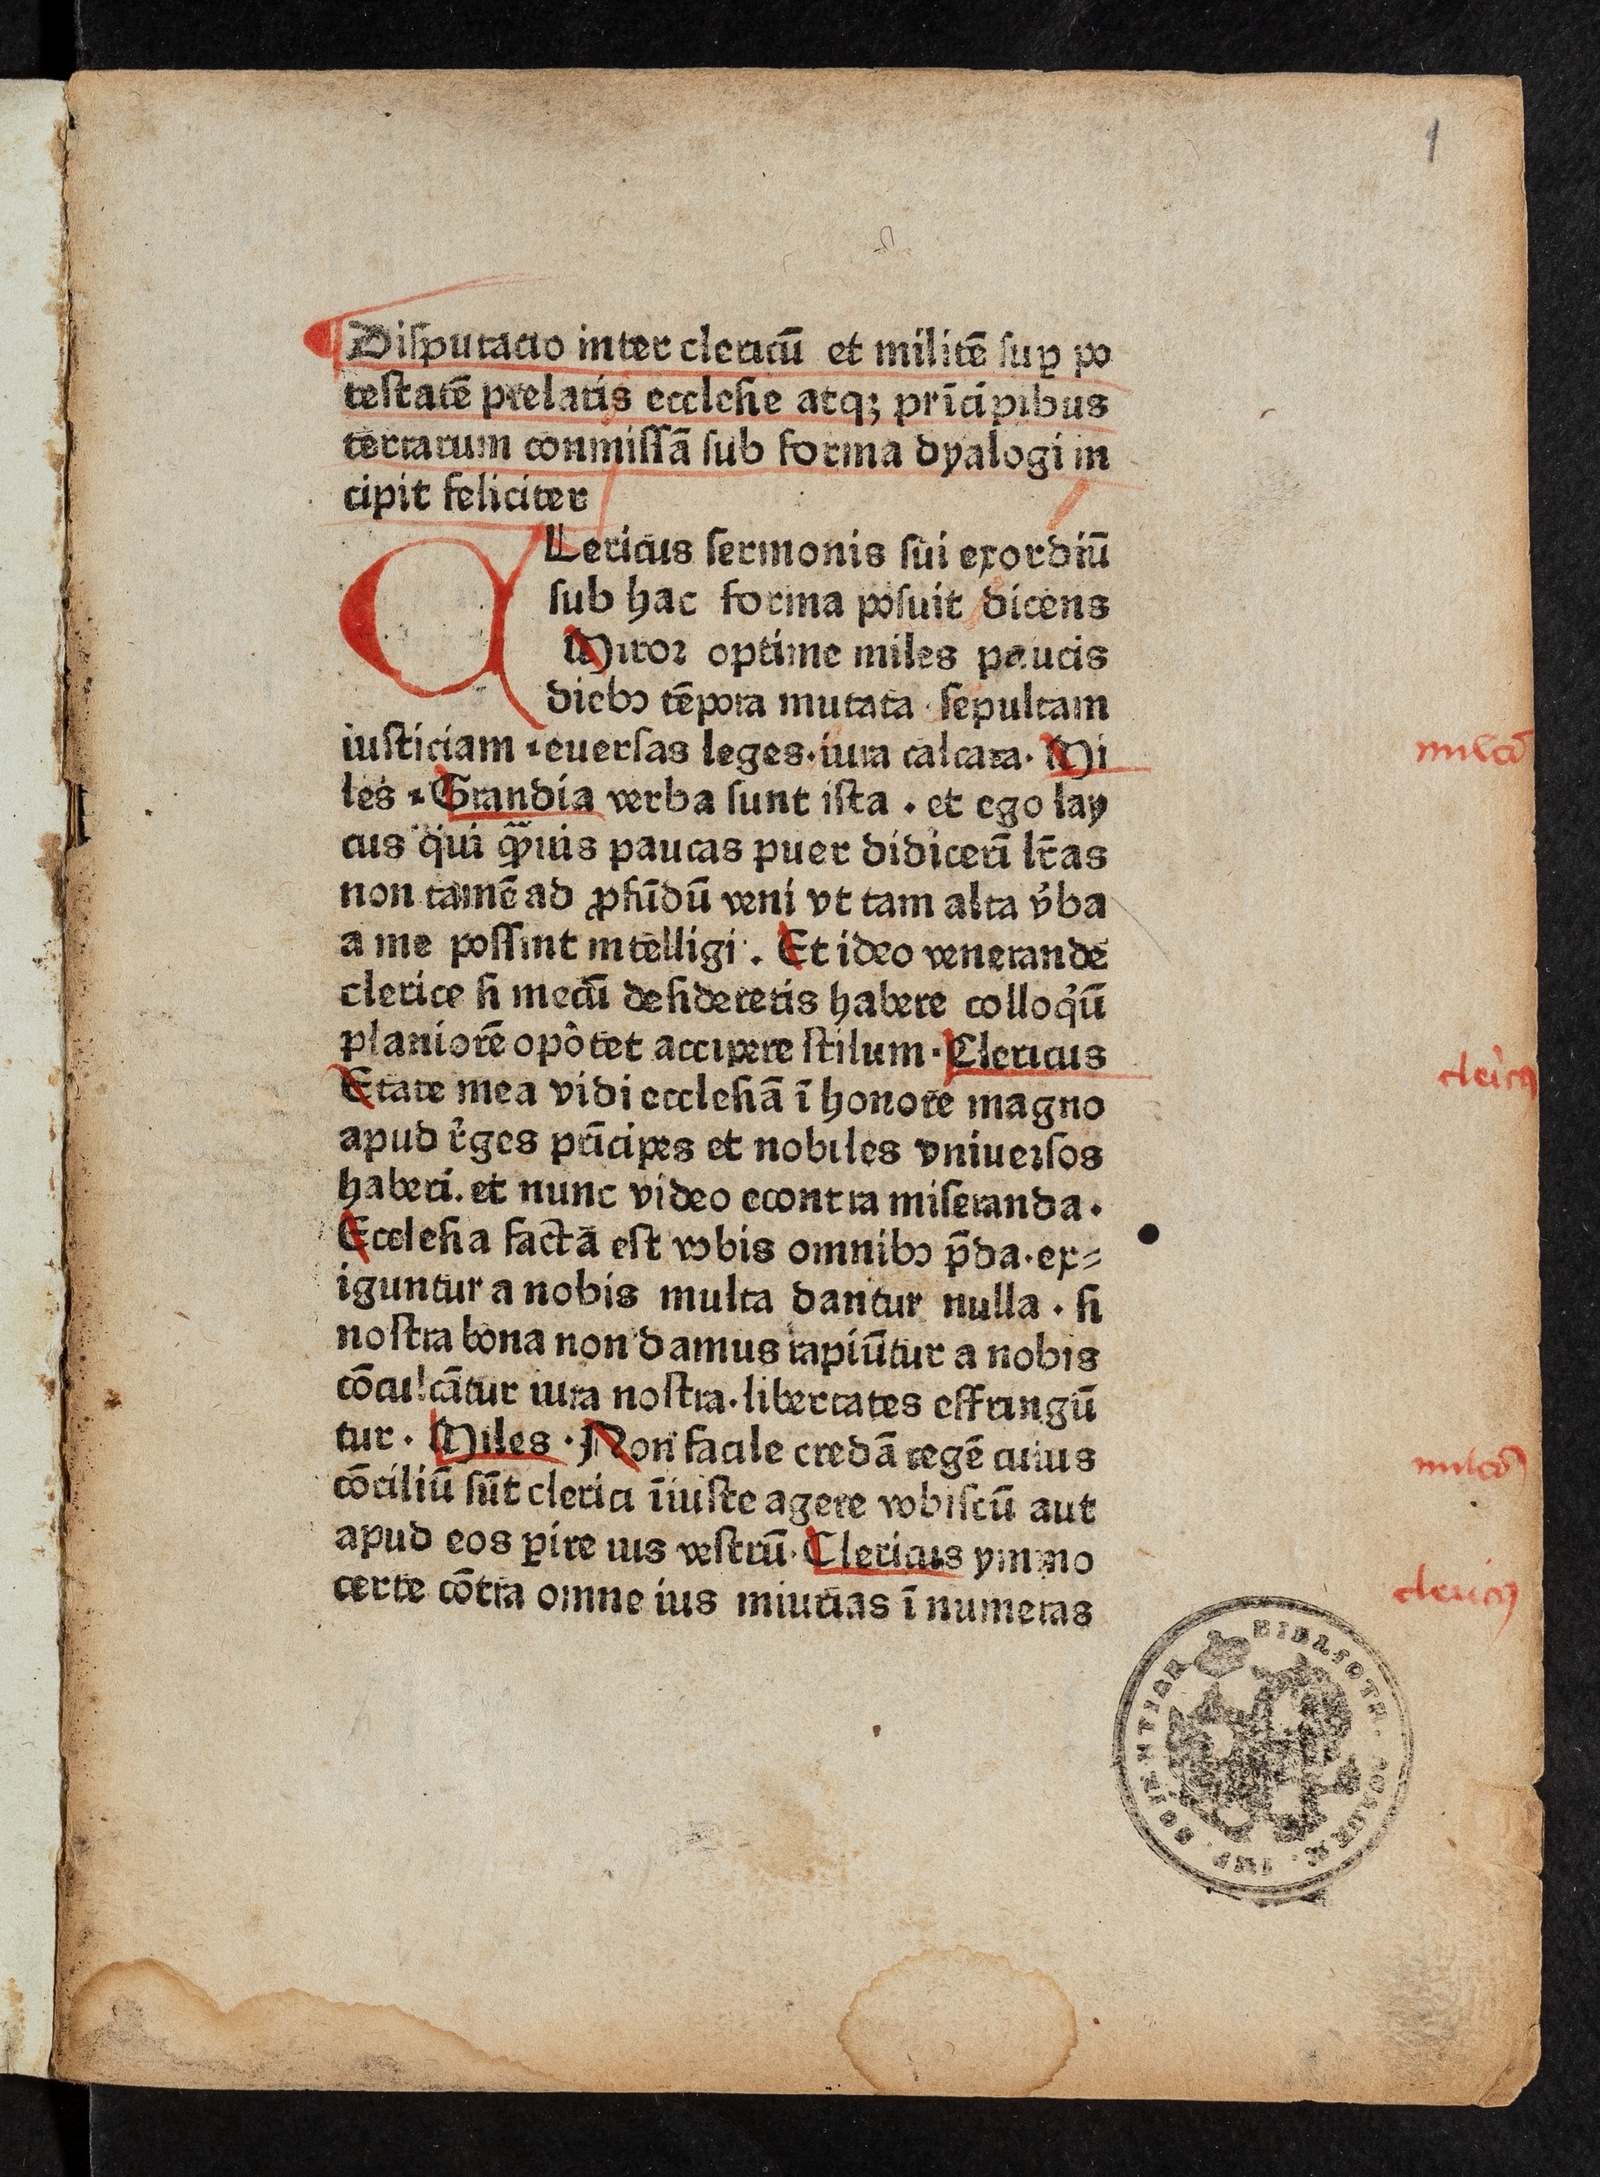 1
Disputacio inter clericū et militē suꝑ po
testatē prelatis ecclesie atqꝫ prīcipibus
terrarum conmissā sub forma dyalogi in
cipit feliciter
CLericus sermonis sui exordiū
sub hac forma posuit dicens
Miror optime miles paucis
diebꝯ tēpora mutata · sepultam
iusticiam · euersas leges · iura calcata · Mi
les · Grandia verba sunt ista . et ego lay
cus qui qͣ̃uis paucas puer didiceri lr̄as
non tamē ad ꝓfūdū veni vt tam alta v̓ba
a me possint intelligi . Et ideo venerande
clerice si mecū desideretis habere colloq̓ū
planiorē opôtet accipere stilum · Clericus
Etate mea vidi ecclesiā ī honore magno
apud r̓ges prīcipes et nobiles vniuersos
haberi . et nunc video econtra miseranda .
Ecclesia factā est vobis omnibꝯ p̄da · ex⸗
iguntur a nobis multa dantur nulla . si
nostra bona non damus rapiūtur a nobis
cōculcātur iura nostra · libertates effringū
tur · Miles · Non facile credā regē cuius
cōciliū sūt clerici īiuste agere vobiscū aut
apud eos ꝑire ius vestrū · Clericus ymmo
certe cōtra omne ius iniurias ī numeras
miles
clericꝯ
miles
clericꝯ